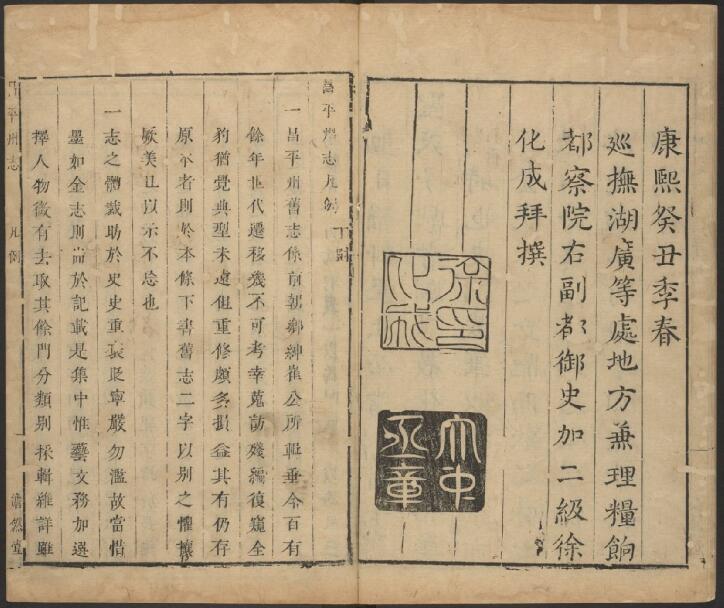 康熙癸丑季春
巡撫湖廣等處地方兼理糧餉
都察院右副都御史加二級徐
化成拜撰
徐印化成
大中丞章
昌平州志凡例
一昌平州舊志係前朝鄉紳崔公所輯垂今百有
餘年世代遷移幾不可考幸蒐訪殘編復窺全
豹猶覺典型未遠但重修頗多損益其有仍存
原本者則於本條下書舊志二字以别之懼攘
厥美且以示不忘也
一志之體裁助於史史重褒貶寧嚴勿濫故當惜
墨如金志則尚於記載是集中惟藝文務加選
擇人物微有去取其餘門分類别採輯維詳雖
昌平州志 凡例 澹然堂